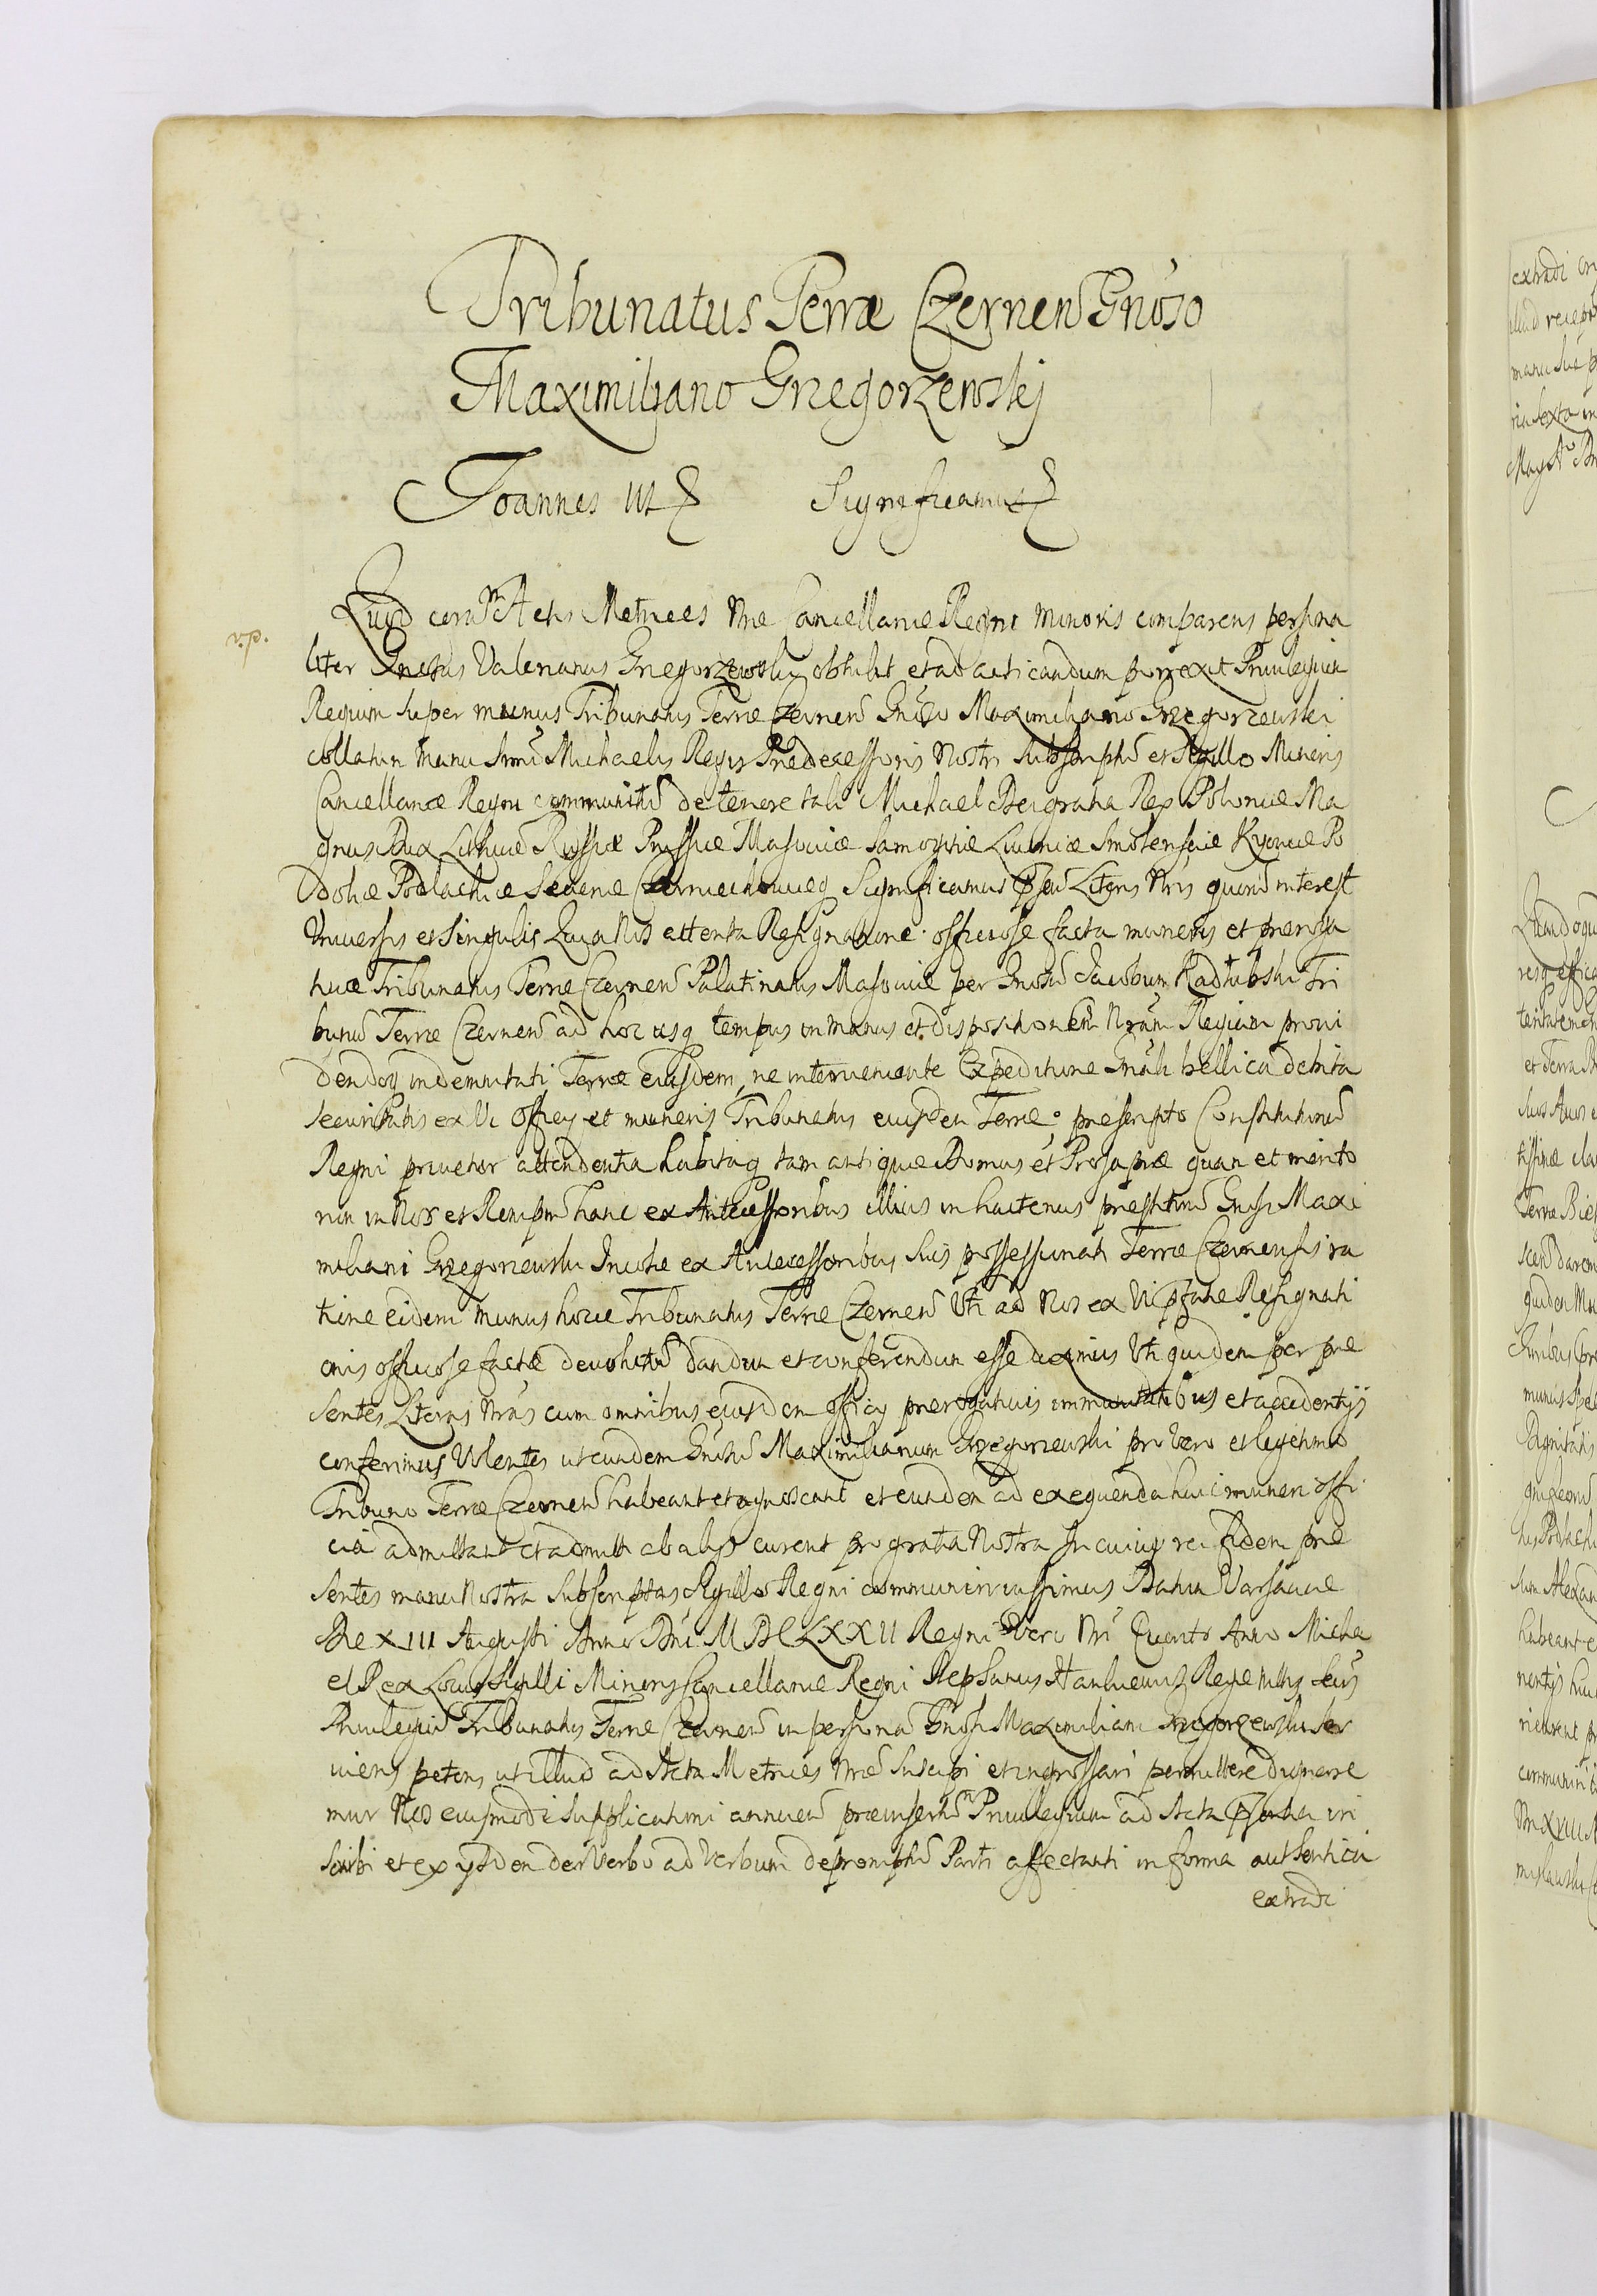 Tribunatus Terræ Czernen Gnoso
Maximiliano Grzegorzewskj
Joannes III Significamus
Quod coram Actis Metrices Nræ Cancellariæ Regni Minoris comparens persona
liter Gnosus Valerianus Grzegorzewski obtulit et ad acticandum porrexit Privilegium
Regium super munus Tribunatus Terræ Czernen Gnoso Maximiliano Grzegorzewski
collatum manu Srmi Michaelis Regis Prædecessoris Nostri subscriptu et Sigillo Minoris
Cancellariæ Regni communitu de tenore tali Michael Dei gratia Rex Poloniæ Ma
gnus Dux Lithuæ Russiæ Prussiæ Masoviæ Samogitiæ Livoniæ Smolensciæ Kyoviæ Po
doliæ Podlachiæ Severiæ Czerniechoviæq Significamus Psen Litteris Nris quoru interest
Universis et Singulis Quia Nos attenta Resignatione officiose facta muneris et preroga
tivæ Tribunatus Terræ Czernen Palatinatus Masoviæ per Gnosu Jacobum Radłubski Tri
bunu Terræ Czernen ad hoc usq tempus in manus et dispositionem Nram Regiam provi
dendoq indemnitati Terræ eiusdem, ne interveniente Expeditione Gnali bellica debita
securitatis ex Vi Officy et muneris Tribunatus eiusdem Terræ præscripto Constitutionu
Regni privetor attendentia habitaq tam antiquæ Domus et Prosapiæ quam et merito
rum in Nos et Rempm hanc ex Antecessoribus illius in hactenus præstitum Gnosi Maxi
miliani Grzegorzewski Incolæ ex Antecessoribus suis possessionati Terræ Czernensis ra
tione eidem munus hocce Tribunatus Terræ Czernen Uti ad Nos ex Vi Pfatæ Resignati
onis officiose factæ devolutu dandum et conferendum esse duximus Uti quidem per præ
sentes Literas Nras cum omnibus eiusdem officy prerogativis immunitatibus et accidentijs
conferimus Volentes ut eundem Gnosu Maximilianum Grzegorzewski pro Vero et legitimo
Tribuno Terræ Czernen habeant et agnoscant et eundem ad exequenda huic muneri offi
cia admittant et admitti ab alys curent pro gratia Nostra In cuius rei fidem præ
sentes manu Nostra subscriptas Sigillo Regni communiri iussimus Datum Varsaviæ
Die XIII Augusti Anno Dni MDCLXXII Regni Vero Nri Quarto Anno Micha
el Rex Locus Sigilli Minoris Cancellariæ Regni Stephanus Hankiewicz Regie Mttis Secrs
Privilegium Tribunatus Terræ Czernen in persona Gnosi Maximiliani Grzegorzewski ser
viens petens ut illud ad Acta Metrices Nræ suscipi et ingrossari permittere dignare
mur Nos eiusmodi supplicationi annuen præinsertu Privilegium ad Acta Psentia in
scribi et ex ysdem de Verbo ad Verbum depromptu Parti affectanti in forma authentica
extradi